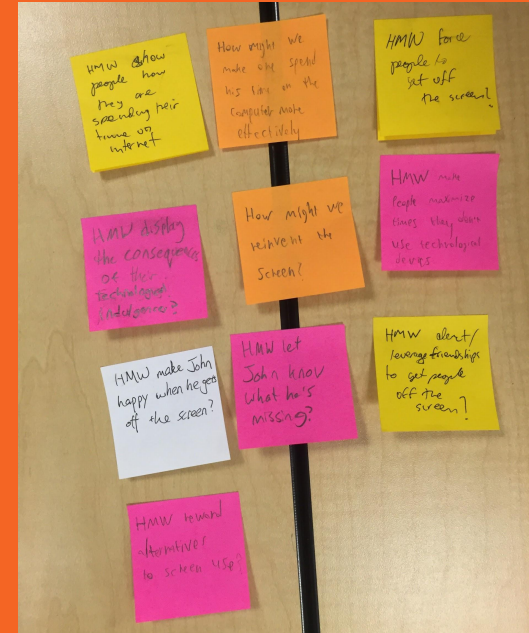 HMW show
people how
they are
spending their
time on
internet
How might we
make one spend
his time on the
computer more
effectively
HMW force
people to
get off
the screen?
HMW display
the consequences
of their
technological
indulgence?
How might we
reinvent the
Screen?
HMW make
People maximize
times they don't
use technological
devices
HMW make John
happy when he gets
off the screen?
HMW let
John know
what he's
missing?
HMW alert/
leverage friendships
to get people
off the
screen?
HMW reward
alternatives
to screen use?